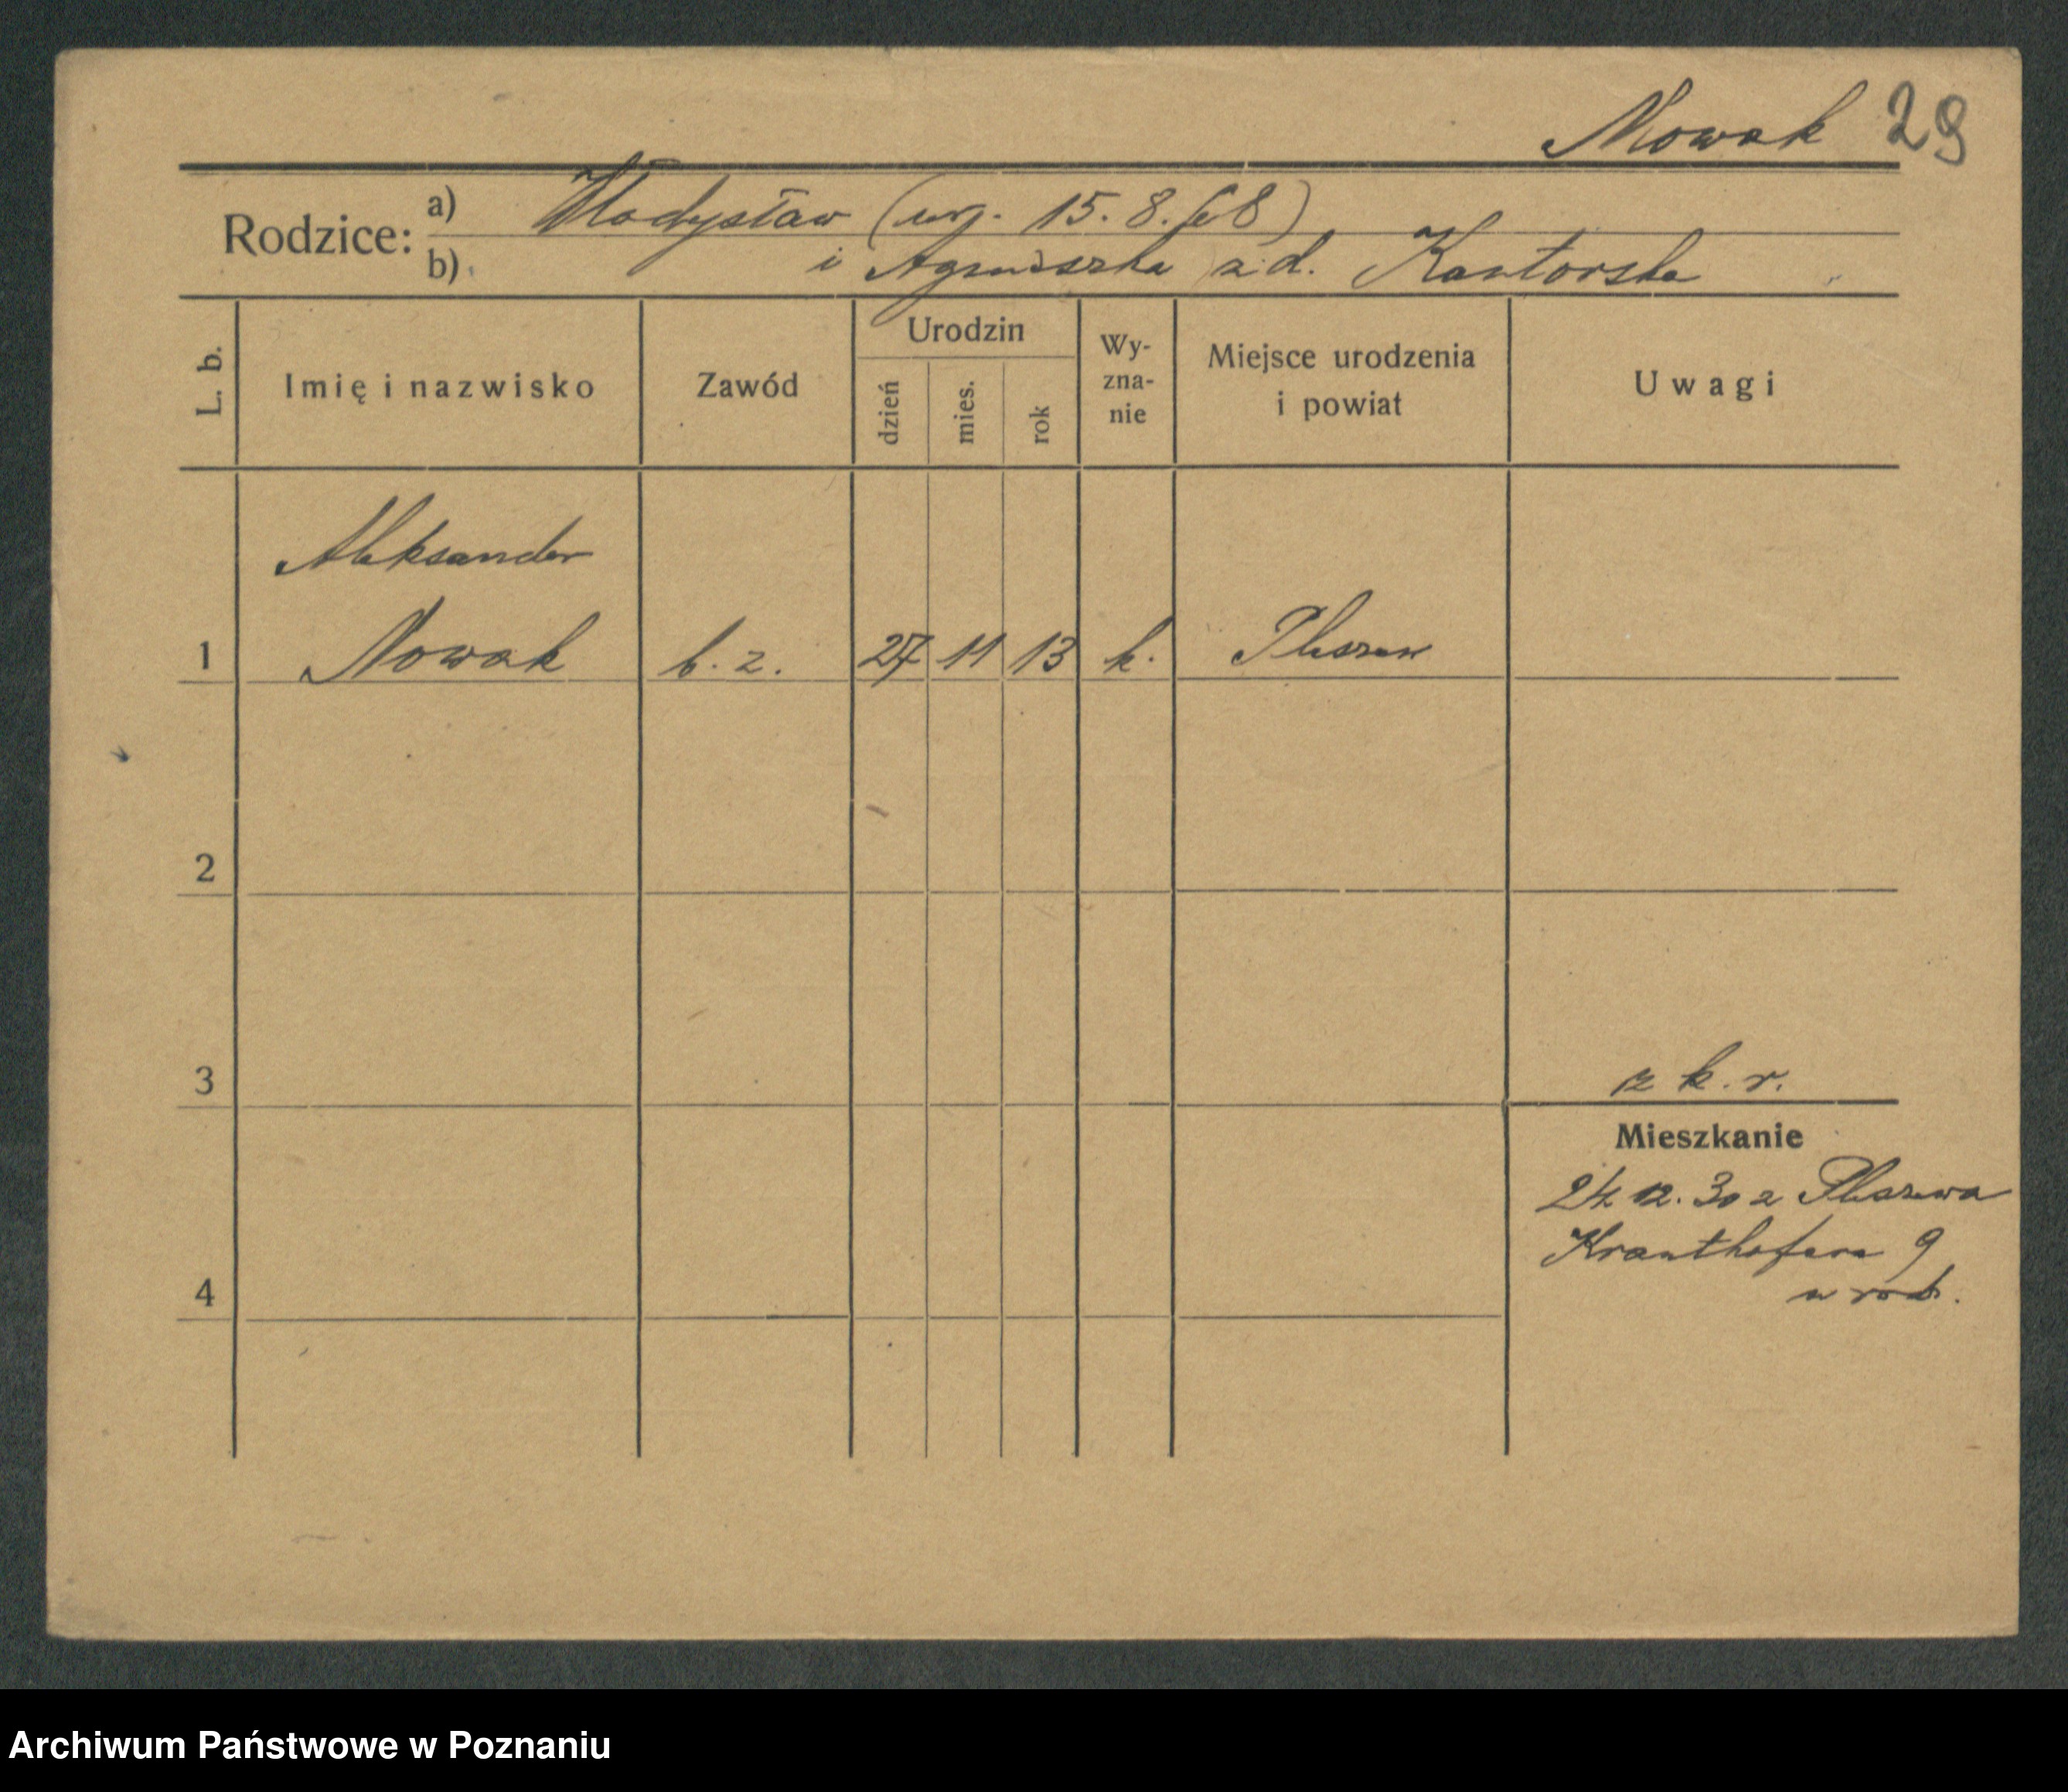 Nowak 29
Rodzice: a) Władysław (ur. 15. 8. 68)
b) i Agnieszka z d. Kantorska
L. b.
Imię i nazwisko
Zawód
Urodzin
dzień
mies.
rok
Wy-
zna-
nie
Miejsce urodzenia
i powiat
Uwagi
Aleksander
1 Nowak b. z. 27 11 13 k. Pleszew
2
3
z k. r.
Mieszkanie
24 12. 30 z Pleszewa
Krauthofera 9
4
u rod.
Archiwum Państwowe w Poznaniu